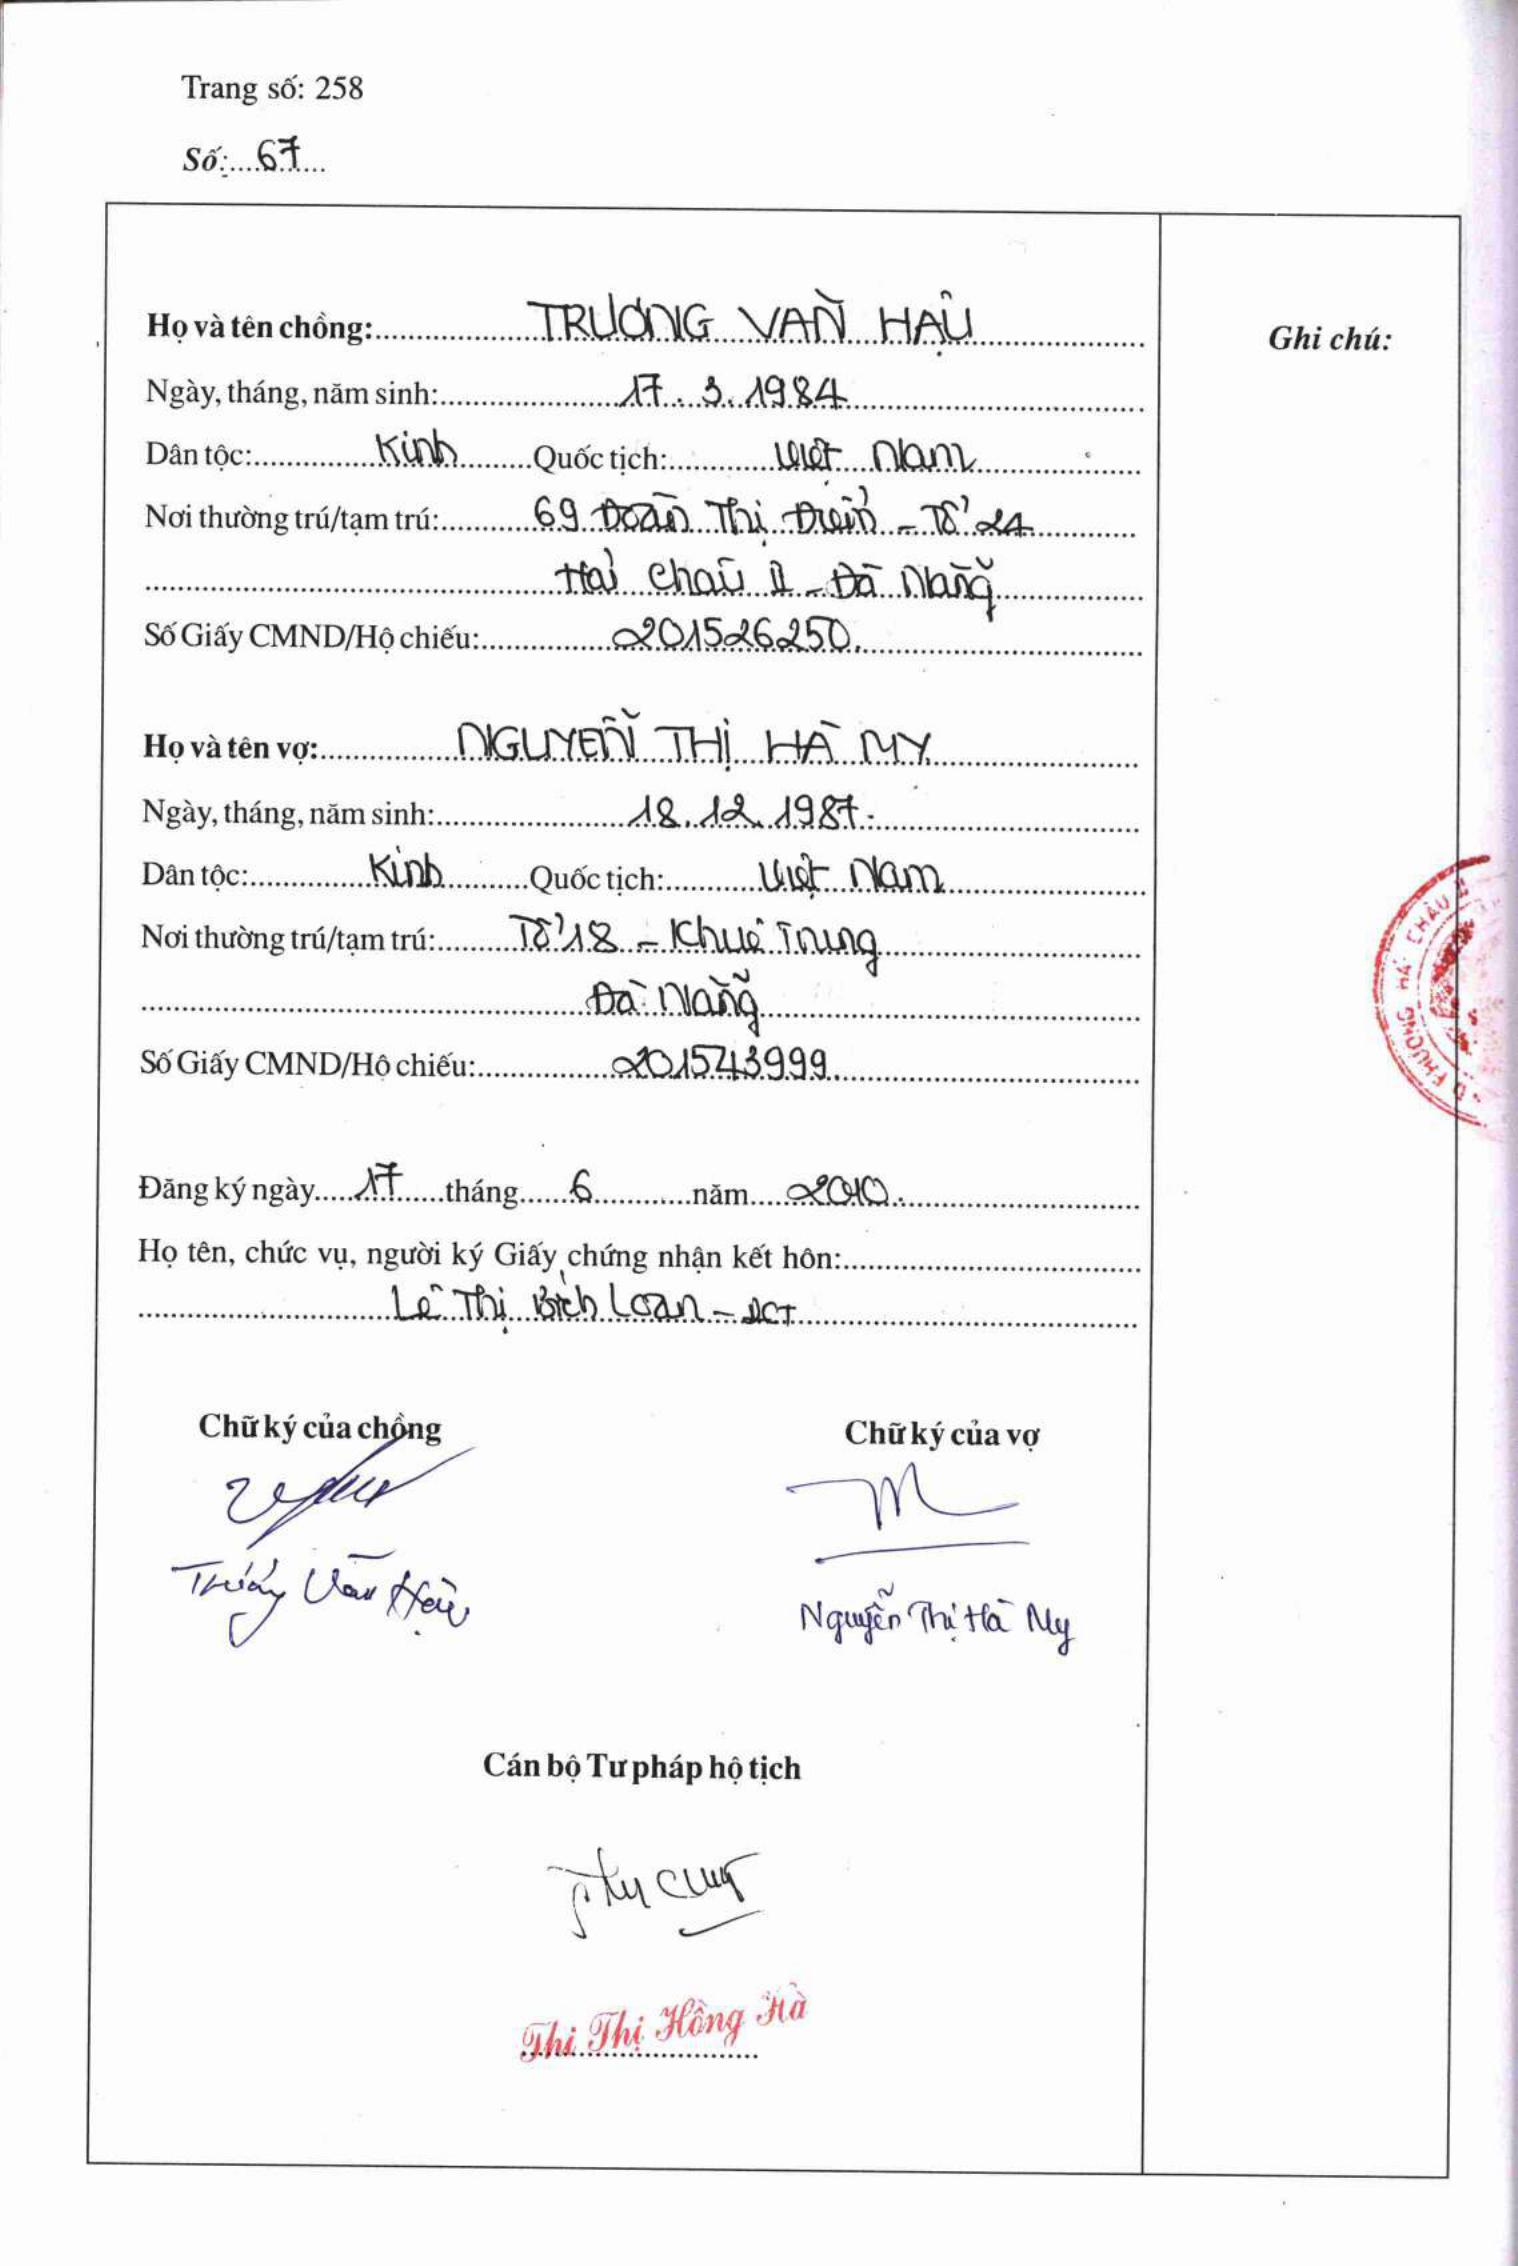 Trang số: 258
Số: 67
Họ và tên chồng: TRƯƠNG VĂN HẬU
Ghi chú:
Ngày, tháng, năm sinh: 17.3.1984
Dân tộc: Kinh Quốc tịch: Việt Nam
Nơi thường trú/tạm trú: 69 Đoàn Thị Điểm - Tổ 24
Hải Châu II - Đà Nẵng
Số Giấy CMND/Hộ chiếu: 201526250.
Họ và tên vợ: NGUYỄN THỊ HÀ MY
Ngày, tháng, năm sinh: 18.12.1987.
Dân tộc: Kinh Quốc tịch: Việt Nam
Nơi thường trú/tạm trú: Tổ 18 - Khuê Trung
Đà Nẵng
Số Giấy CMND/Hộ chiếu: 201543999
Đăng ký ngày 17 tháng 6 năm 2010.
Họ tên, chức vụ, người ký Giấy chứng nhận kết hôn:
Lê Thị Bích Loan - PCT
Chữ ký của chồng Chữ ký của vợ
Trương Văn Hậu
Nguyễn Thị Hà My
Cán bộ Tư pháp hộ tịch
Thi Thị Hồng Hà
PHƯỜNG HẢI CHÂU II